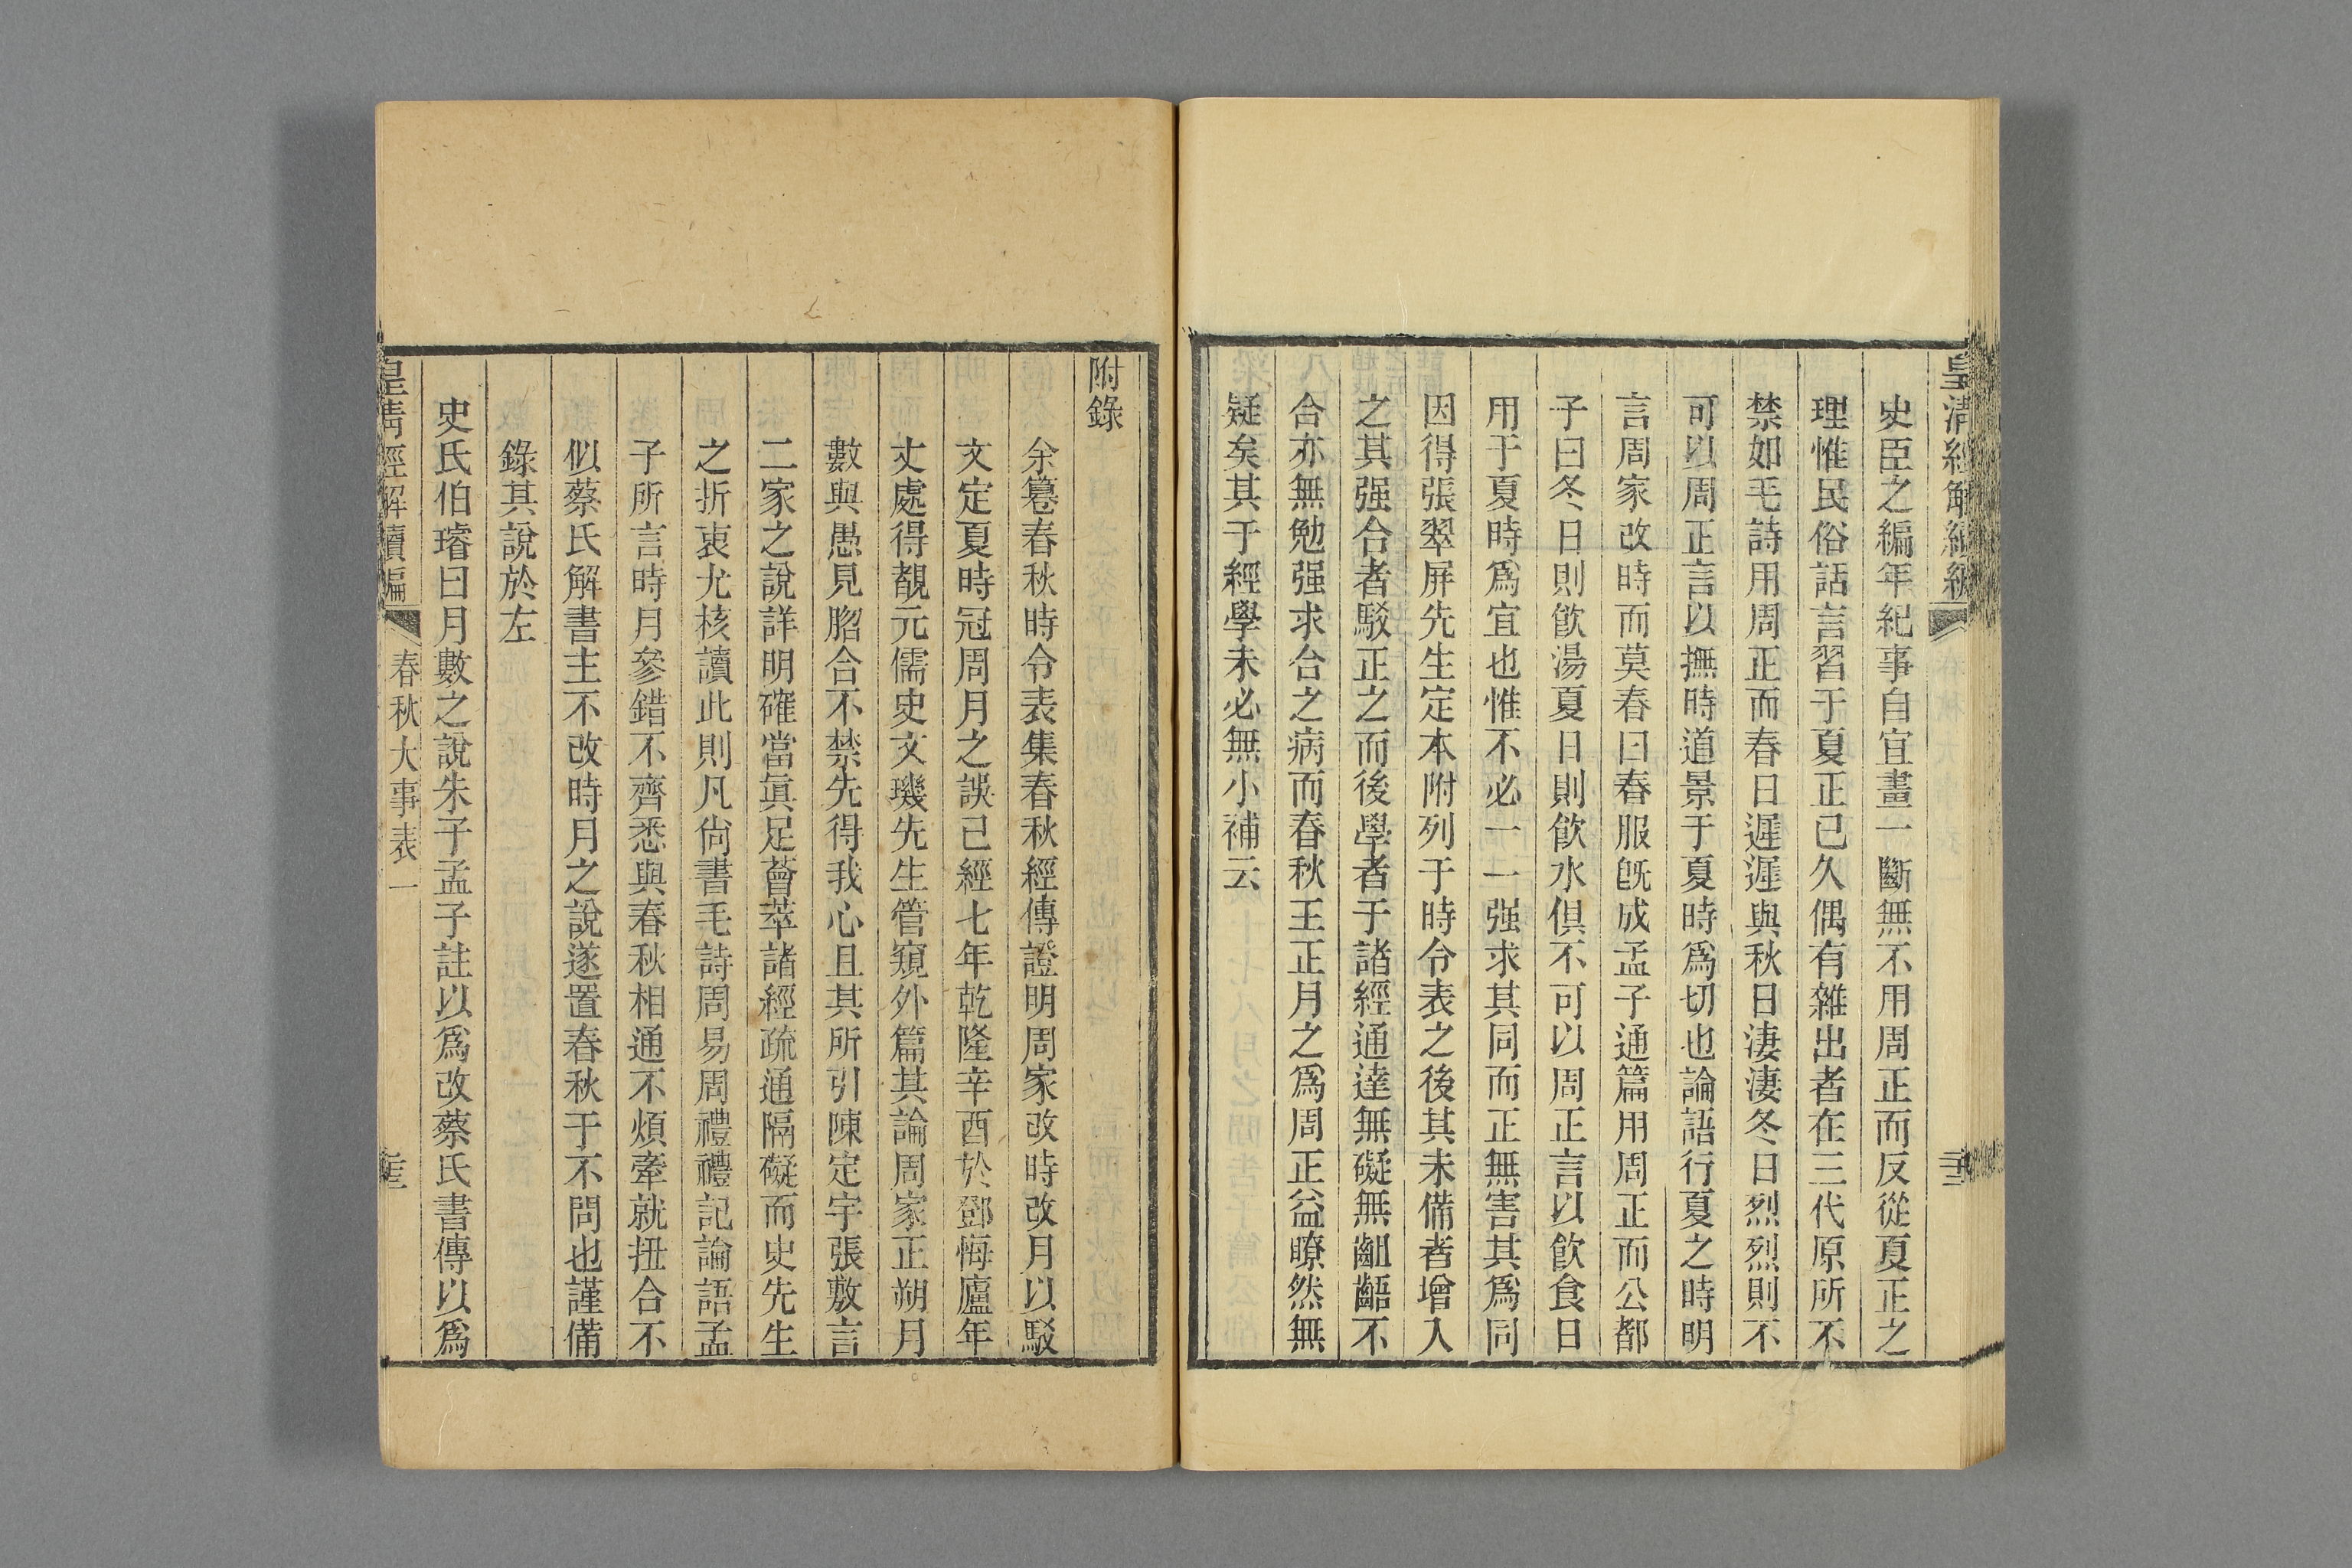 皇清經解續編
史臣之編年紀事自宜畫一斷無不用周正而反從夏正之
理惟民俗話言習于夏正已久偶有雜出者在三代原所不
禁如毛詩用周正而春日遲遲與秋日淒淒冬日烈烈則不
可以周正言以撫時道景于夏時爲切也論語行夏之時明
言周家改時而莫春曰春服旣成孟子通篇用周正而公都
子曰冬日則飮湯夏日則飮水俱不可以周正言以飮食日
用于夏時爲宜也惟不必一一强求其同而正無害其爲同
因得張翠屏先生定本附列于時令表之後其未備者增入
之其强合者駁正之而後學者于諸經通達無礙無齟齬不
合亦無勉强求合之病而春秋王正月之爲周正益瞭然無
疑矣其于經學未必無小補云
附錄
余纂春秋時令表集春秋經傳證明周家改時改月以駁
文定夏時冠周月之誤己經七年乾隆辛酉於鄧悔廬年
丈處得覩元儒史文璣先生管窺外篇其論周家正朔月
數與愚見脗合不禁先得我心且其所引陳定宇張敷言
二家之說詳明確當眞足薈萃諸經疏通隔礙而史先生
之折衷尤核讀此則凡尙書毛詩周易周禮禮記論語孟
子所言時月參錯不齊悉與春秋相通不煩牽就扭合不
似蔡氏解書主不改時月之說遂置春秋于不問也謹備
錄其說於左
史氏伯璿曰月數之說朱子孟子註以爲改蔡氏書傳以爲
皇清經解續編
春秋大事表一